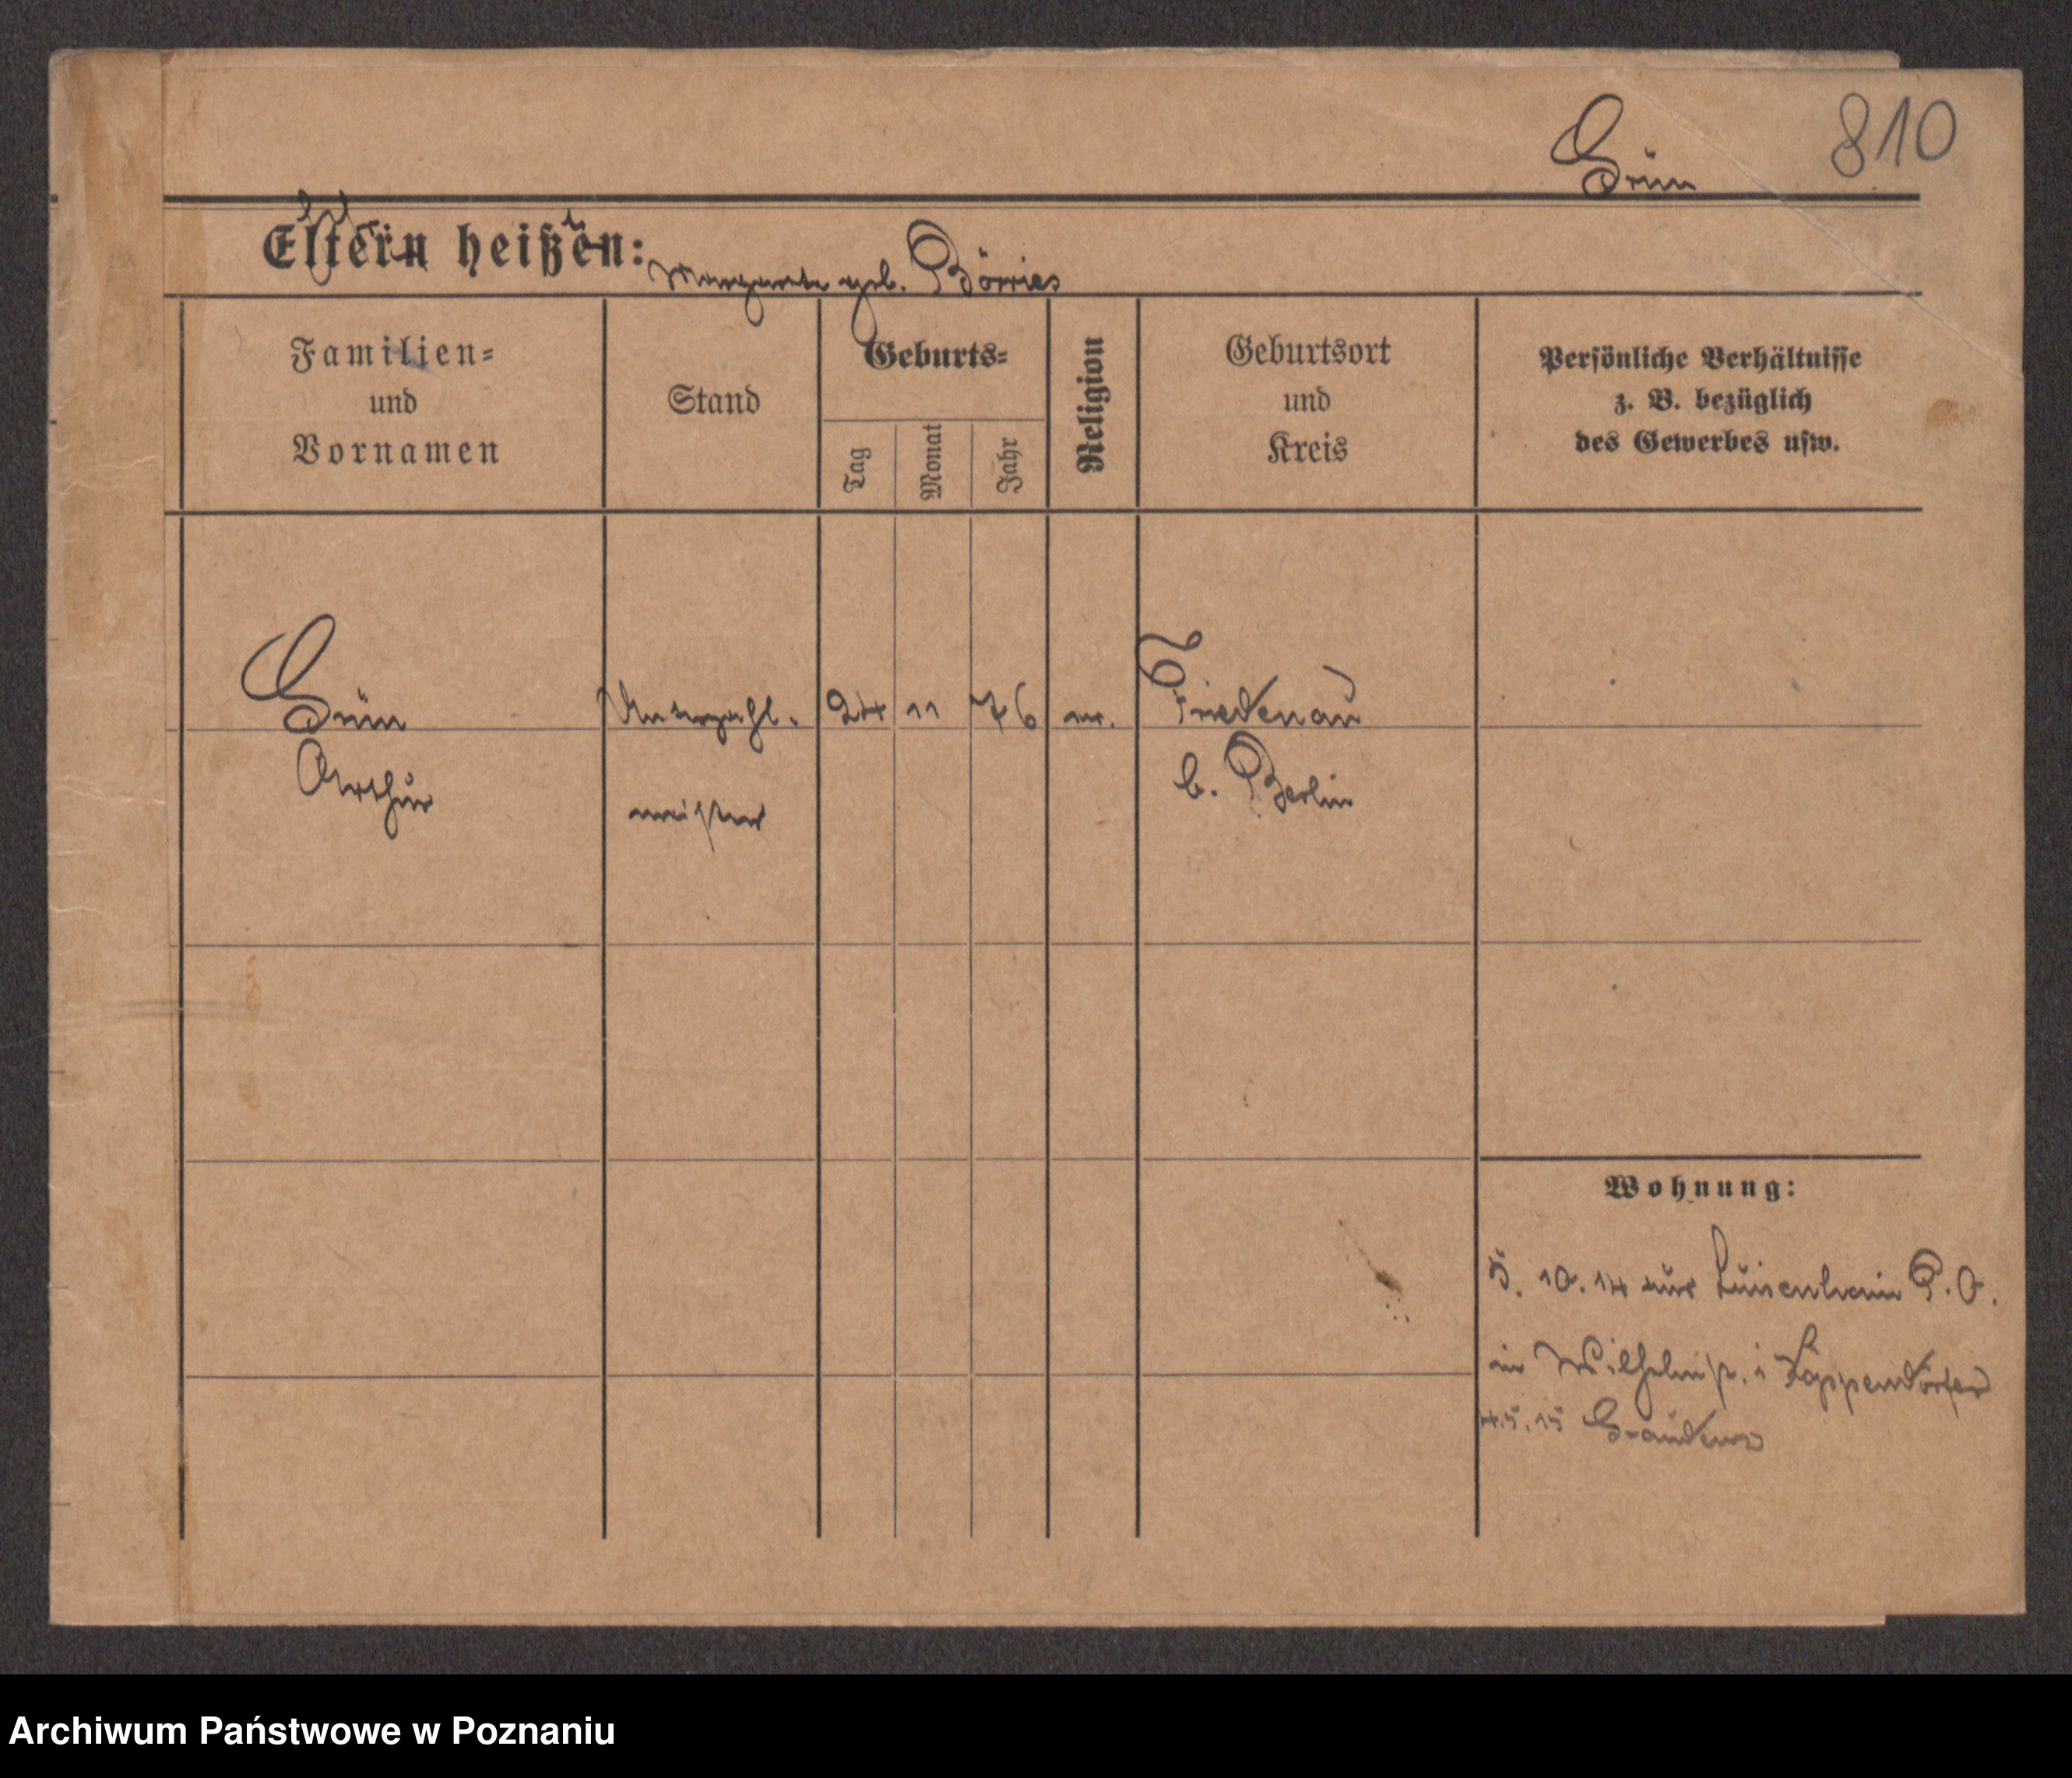 Grün 810
Eltern heißen:
Margarete geb. Börries
Familien=
und
Vornamen
Stand
Geburts=
Tag
Monat
Jahr
Religion
Geburtsort
und
Kreis
Persönliche Verhältnisse
z. B. bezüglich
des Gewerbes usw.
Grün Unterzahl. 24 11 76 Friedenau
Arthur meister b. Berlin
Wohnung:
5. 10. 14 aus Luisenhain P. O.
in Wilhelmstr. Löppendörfer
4.5.15 Graudenz
Archiwum Państwowe w Poznaniu